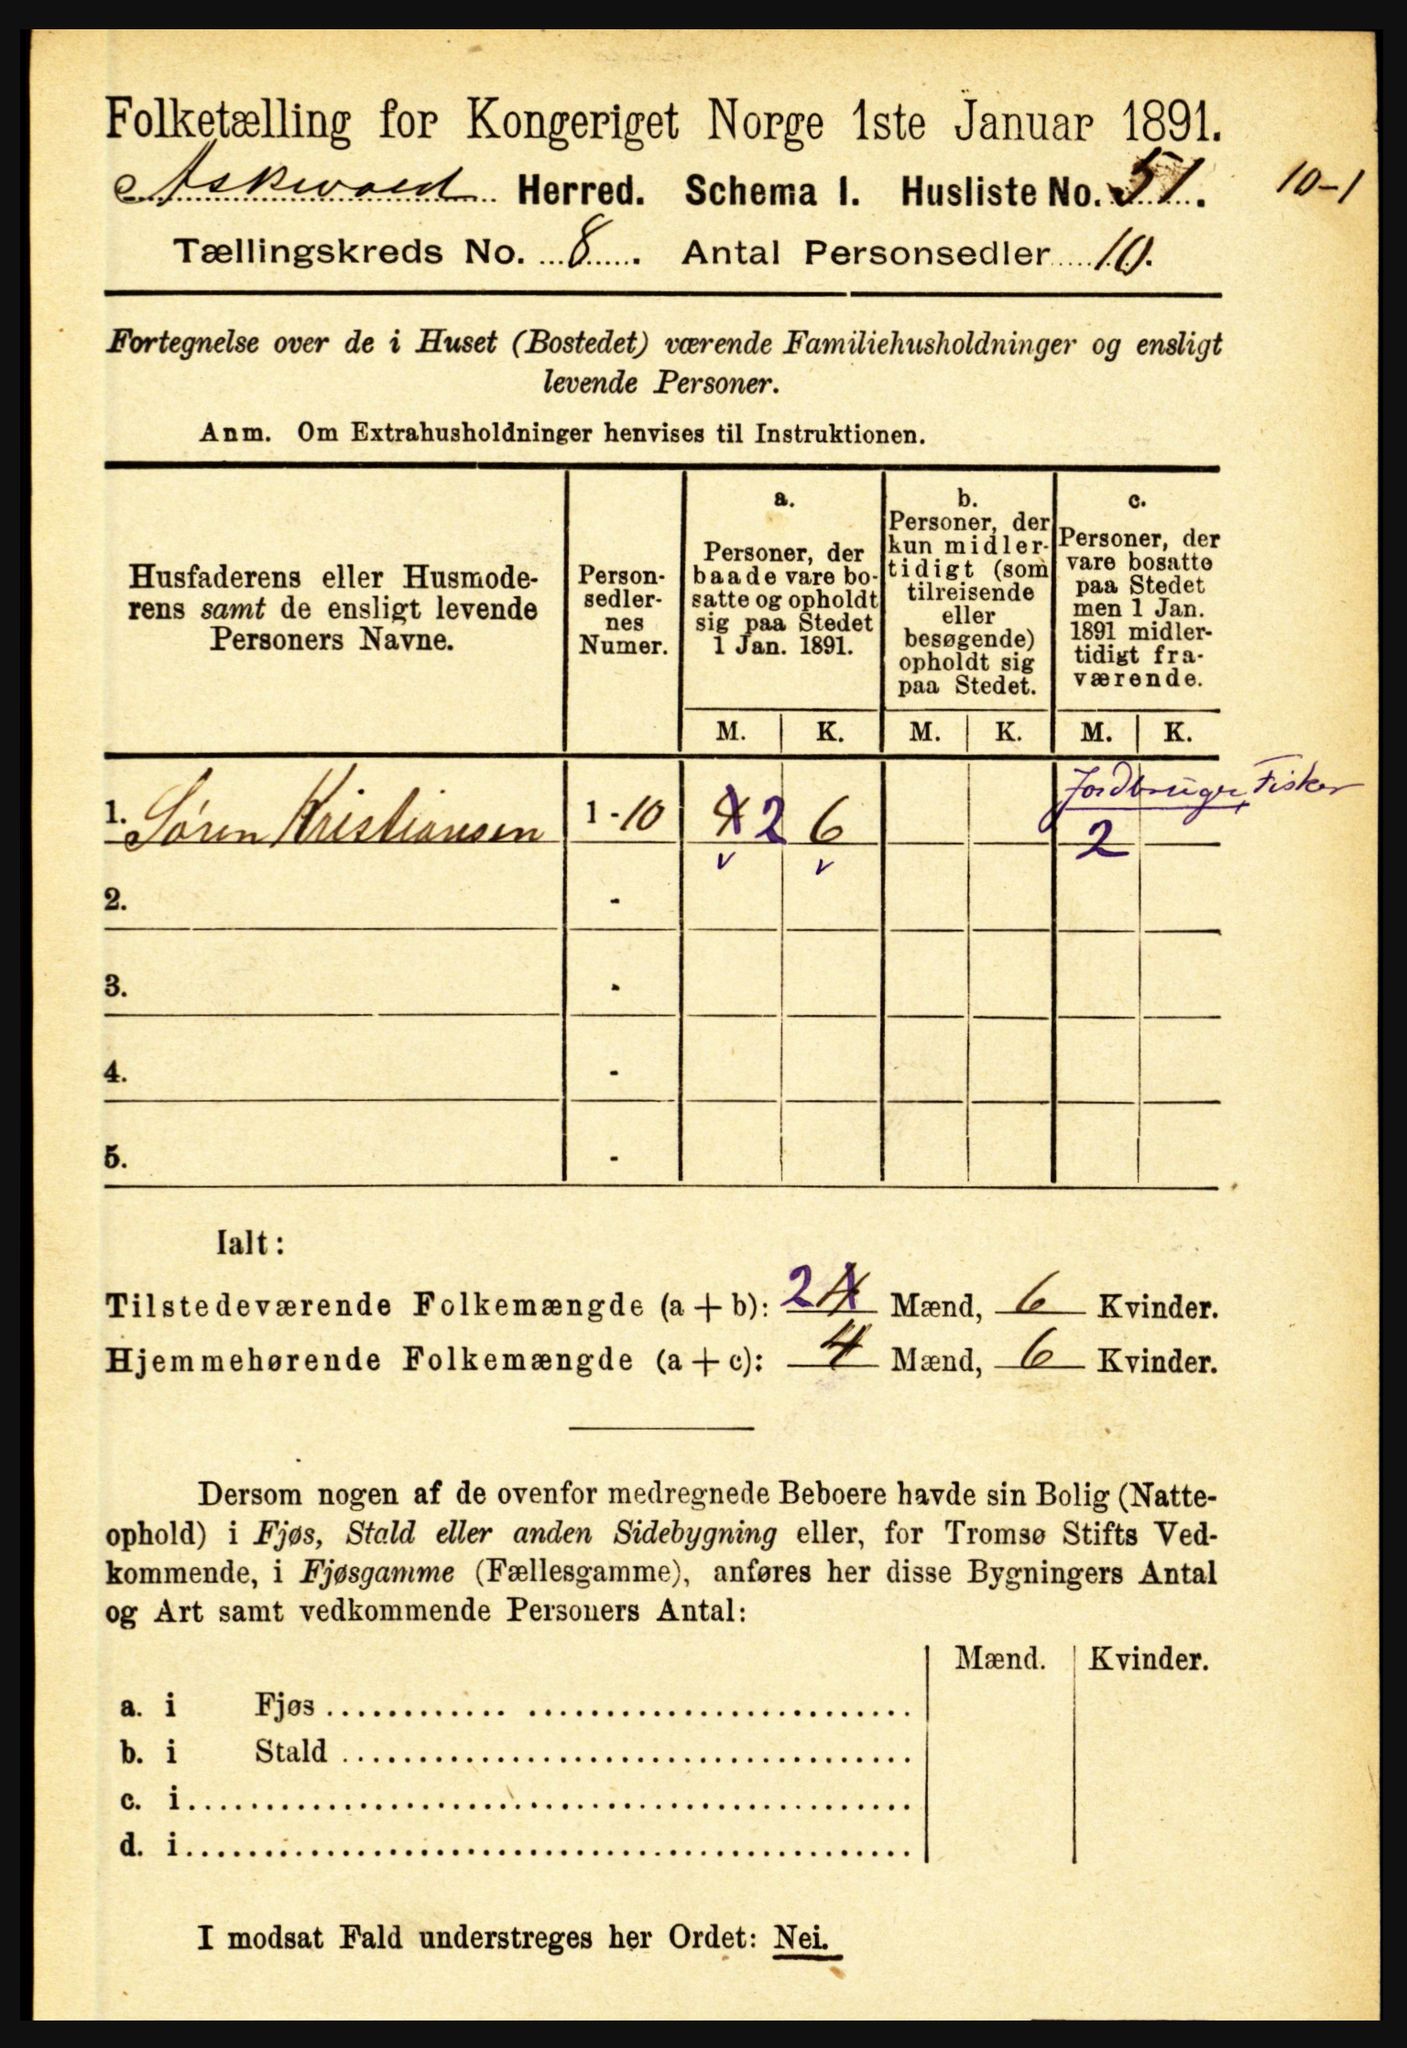 Folketælling for Kongeriget Norge 1ste Januar 1891.
Askevold Herred. Schema I. Husliste No. 51. 10-1
Tællingskreds No. 8. Antal Personsedler 10.
Fortegnelse over de i Huset (Bostedet) værende Familiehusholdninger og ensligt
levende Personer.
Anm. Om Extrahusholdninger henvises til Instruktionen.
Husfaderens eller Husmode-
rens samt de ensligt levende
Personers Navne.
Person-
sedler-
nes
Numer.
a.
Personer, der
baade vare bo-
satte og opholdt
sig paa Stedet
1 Jan. 1891.
b.
Personer, der
kun midler-
tidigt (som
tilreisende
eller
besøgende)
opholdt sig
paa Stedet.
c.
Personer, der
vare bosatte
paa Stedet
men 1 Jan.
1891 midler-
tidigt fra-
værende.
M. K. M. K. M. K.
Jordbruger, Fisker
1. Søren Kristiansen 1 - 10 4 2 6 2
v v
2. -
3. -
4. -
5. -
Ialt:
Tilstedeværende Folkemængde (a + b): 2 4 Mænd, 6 Kvinder.
Hjemmehørende Folkemængde (a + c): 4 Mænd, 6 Kvinder.
Dersom nogen af de ovenfor medregnede Beboere havde sin Bolig (Natte-
ophold) i Fjøs, Stald eller anden Sidebygning eller, for Tromsø Stifts Ved-
kommende, i Fjøsgamme (Fællesgamme), anføres her disse Bygningers Antal
og Art samt vedkommende Personers Antal:
Mænd. Kvinder.
a. i Fjøs
b. i Stald
c. i
d. i
I modsat Fald understreges her Ordet: Nei.